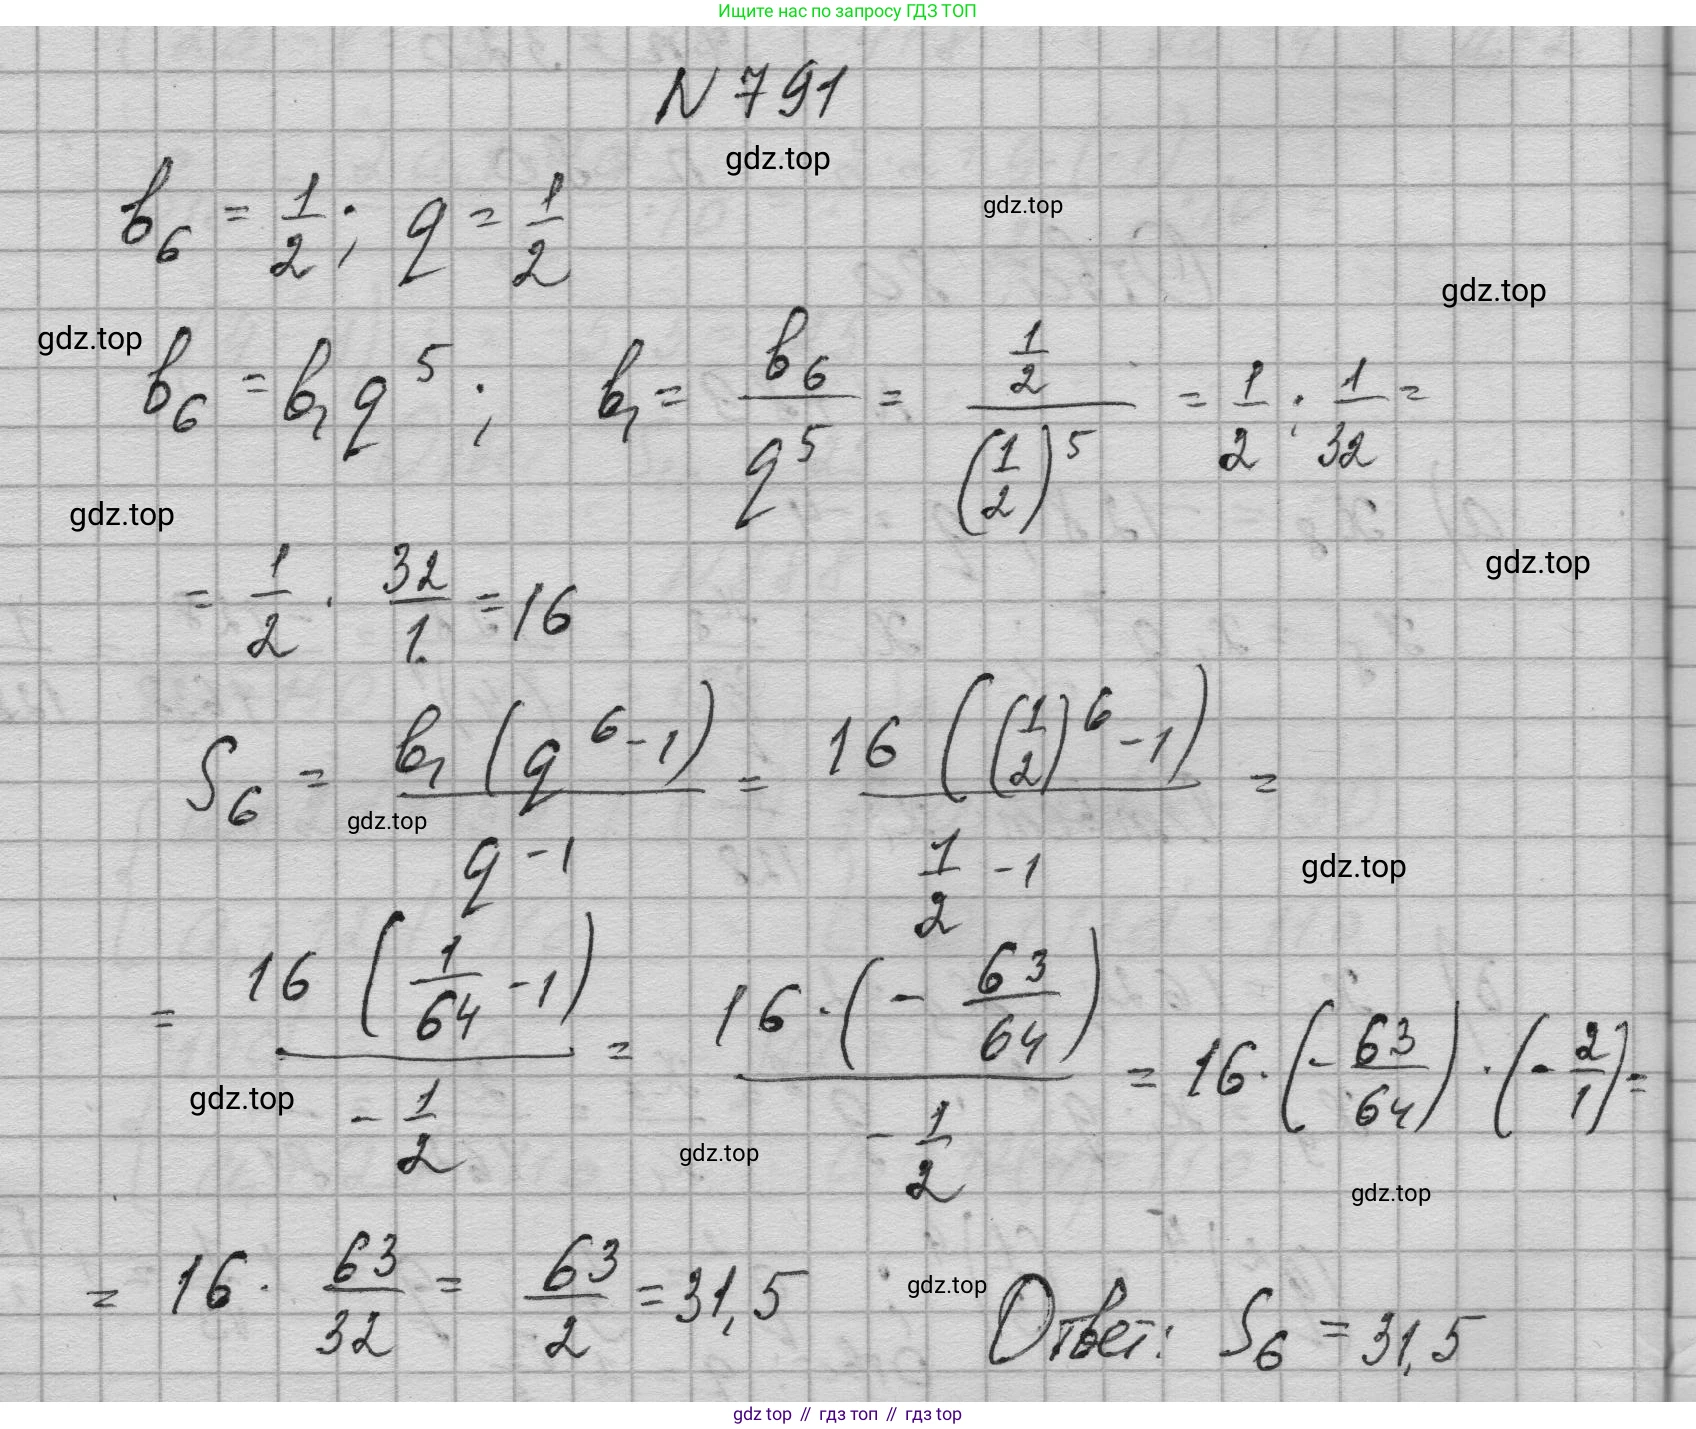 Ищите нас по запросу ГДЗ ТОП
N 791
gdz.top
b₆ = 1/2; q = 1/2
gdz.top
gdz.top
gdz.top
b₆ = b₁q⁵; b₁ = b₆/q⁵ = (1/2)/(1/2)⁵ = 1/2 : 1/32 =
gdz.top
gdz.top
= 1/2 · 32/1 = 16
S₆ = b₁(q⁶-1)/(q-1) = 16((1/2)⁶-1)/(1/2-1) =
gdz.top
gdz.top
= 16(1/64-1)/(-1/2) = 16·(-63/64)/(-1/2) = 16·(-63/64)·(-2/1) =
gdz.top
gdz.top
gdz.top
= 16 · 63/32 = 63/2 = 31,5
gdz.top
Ответ: S₆ = 31,5
gdz top // гдз топ // гдз top